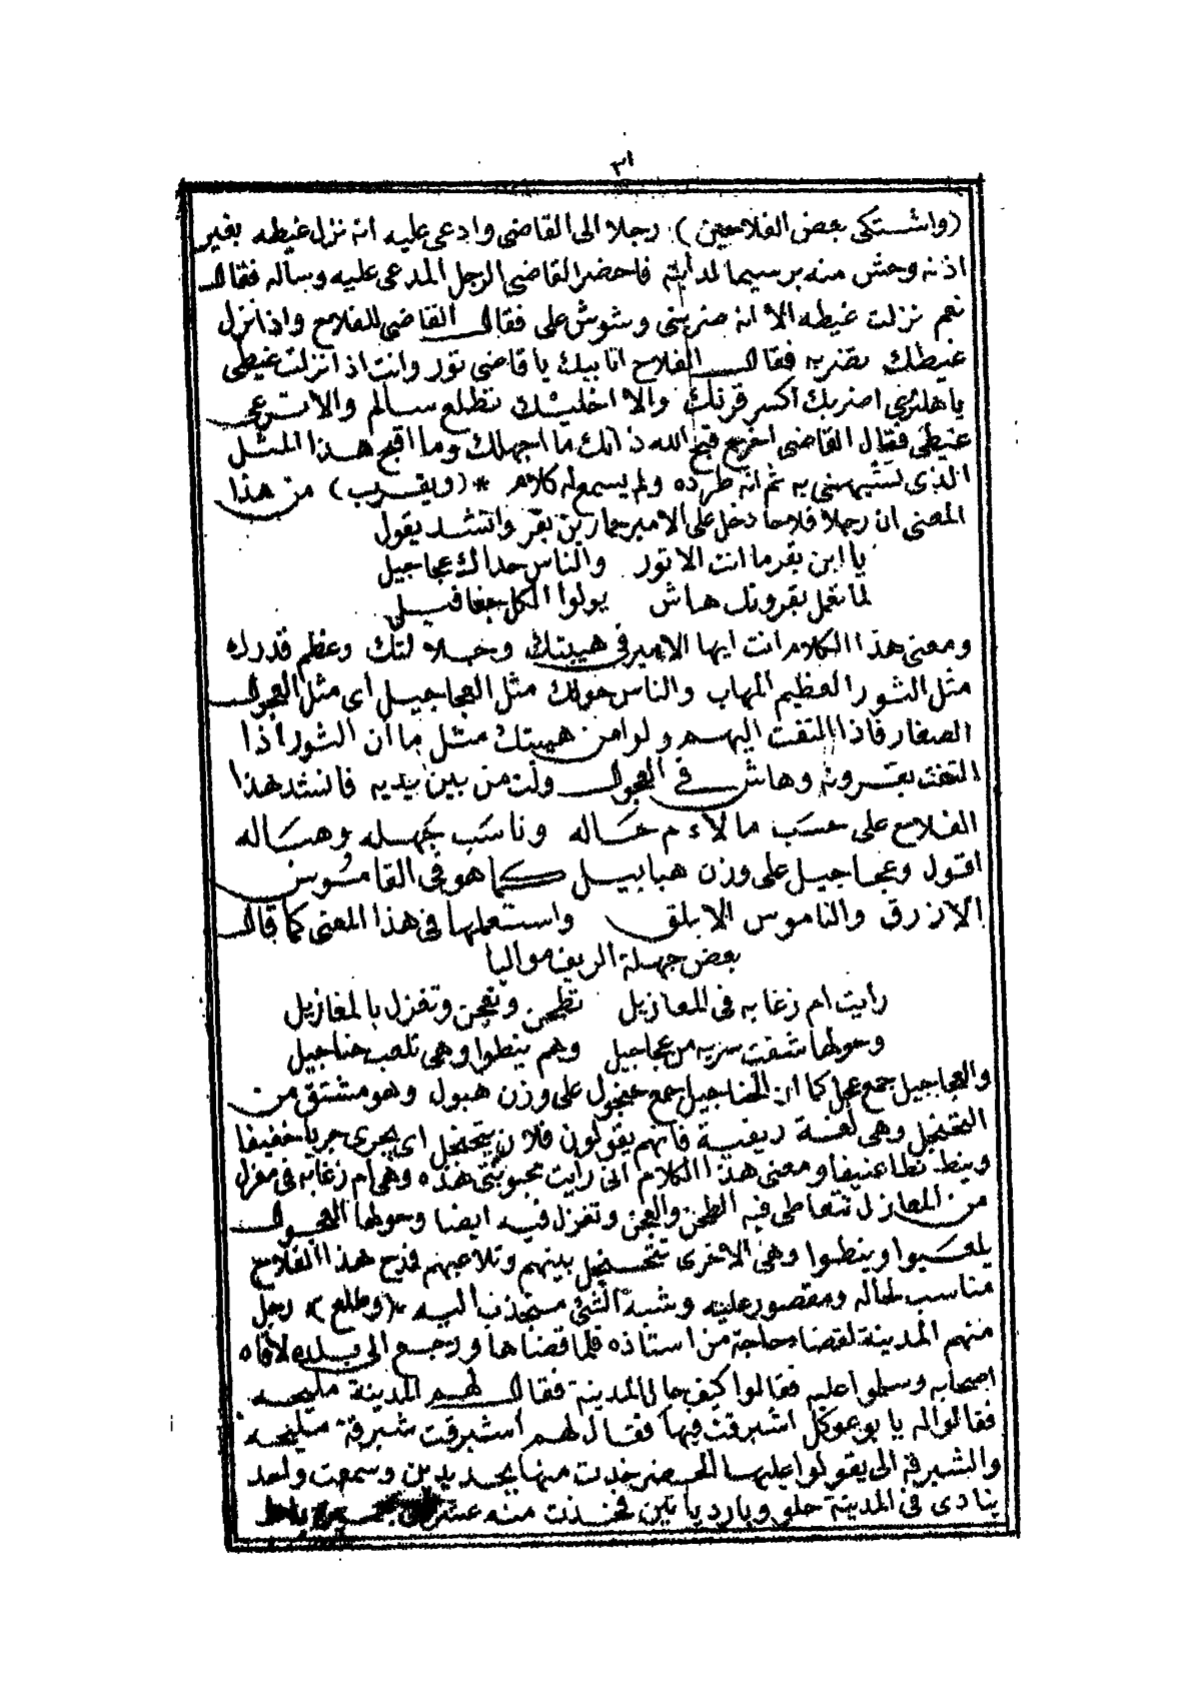 ٣١
(واشتكى بعض الفلاحين) رجلا الى القاضى وادعى عليه انه نزل غيطه بغير
اذنه وحش منه برسيما لدابته فاحضر القاضى الرجل المدعى عليه وساله فقال
نعم نزلت غيطه الا انه ضربنى وشوش على فقال القاضى للفلاح واذا نزل
غيطك تضربه فقال الفلاح انا بيك يا قاضى تور وانت اذا نزلت غيطى
يا هلترى اضربك اكسر قرنك والا اخليك تطلع سالم والا ترعى
غيطى فقال القاضى اخرج قبح الله ذاتك ما اجهلك وما اقبح هذا المثل
الذى تشبهنى به ثم انه طرده ولم يسمع له كلام * (ويقرب) من هذا
المعنى ان رجلا فلاحا دخل على الامير جمار بن بقر وانشد يقول
يا ابن بقر ما انت الا تور والناس حداك عجاجيل
لما تعمل بقرونك هاش يولوا الكل جفافيلى
ومعنى هذا الكلام انت ايها الامير فى هيبتك وجلالتك وعظم قدرك
مثل الثور العظيم المهاب والناس حولك مثل العجاجيل اى مثل العجول
الصغار فاذا التفت اليهم ولوا من هيبتك مثل ما ان الثور اذا
التفت بقرونه وهاش فى العجول ولت من بين يديه فانشد هذا
الفلاح على حسب ما لاءم حاله وناسب جهله وهباله
اقول وعجاجيل على وزن هبابيل كما هو فى القاموس
الازرق والناموس الابلق واستعملها فى هذا المعنى كما قال
بعض جهلة الريف مواليا
رايت ام زغابه فى المعازيل تطحن وتعجن وتغزل بالمغازيل
وحولها شفت سربه من عجاجيل وهم ينطوا وهى تلعب حناجيل
والعجاجيل جمع عجل كما ان الحناجيل جمع حنجول على وزن هبول وهو مشتق من
التحنجل وهى لغة ريفية فانهم يقولون فلان يتحنجل اى يجرى جريا خفيفا
وينط نطا عنيفا ومعنى هذا الكلام انى رايت محبوبتى هذه وهى ام زغابه فى معزل
من المعازل تتعاطى فيه الطحن والعجن وتغزل فيه ايضا وحولها العجول
يلعبوا وينطوا وهى الاخرى تتحنجل بينهم وتلاعبهم فدح هذا الفلاح
مناسب لحاله ومقصور عليه وشبه الشئ منجذب اليه * (وطلع) رجل
منهم المدينة لقضاء حاجة من استاذه فلما قضاها ورجع الى بلده لاقاه
اصحابه وسلموا عليه فقالوا كيف حال المدينة فقال لهم المدينة مليحه
فقالوا له يا بوعوكل اشبرقت فيها فقال لهم اشبرقت شبرقة مليحه
والشبرقه الى يقولوا عليها الحضر خدت منها بجديدين وسمعت واحد
ينادى فى المدينة حلو وبارد يا تين فخدت منه